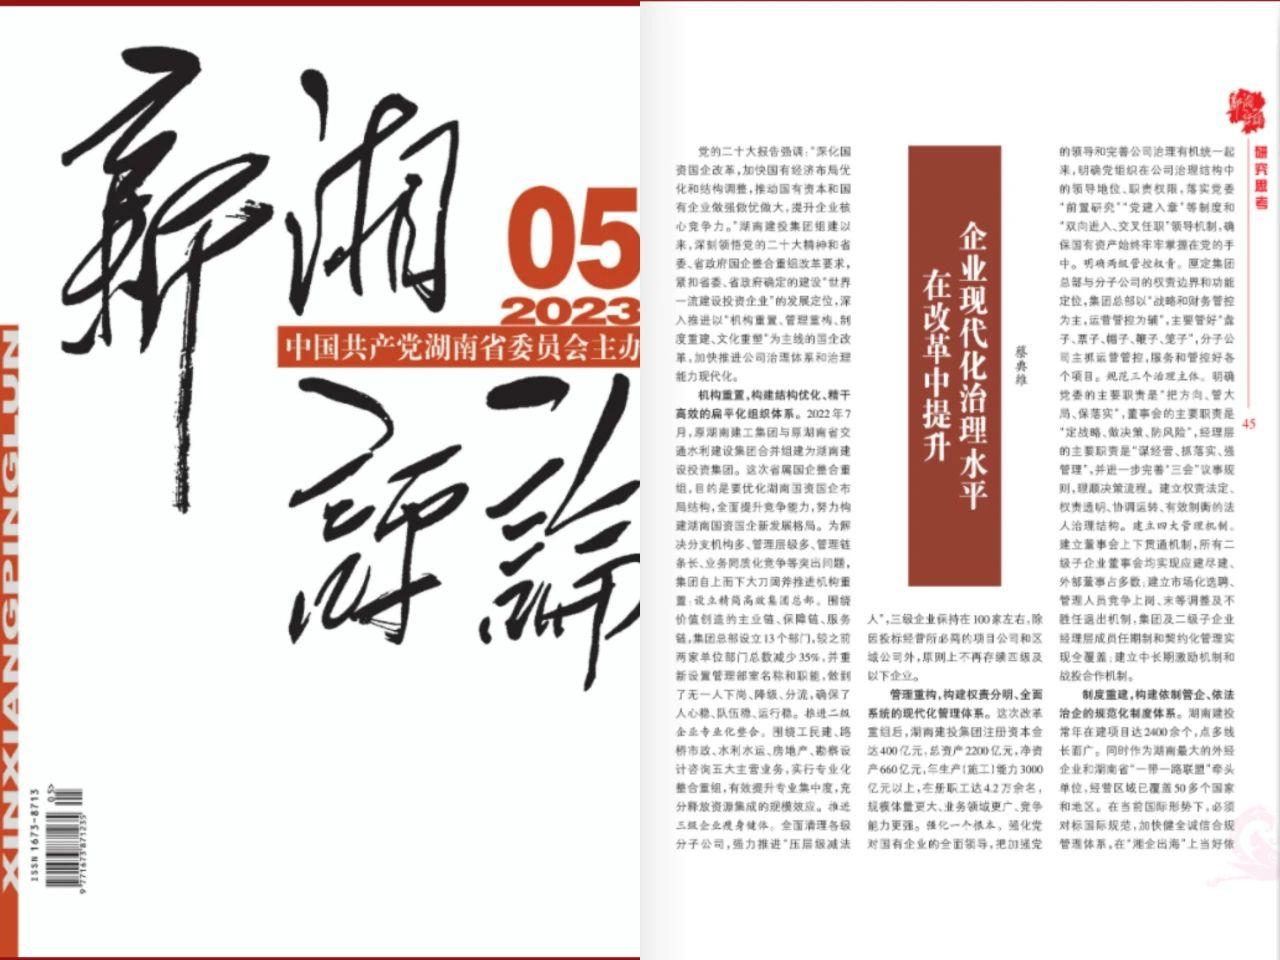 新湘评论
05
2023
中国共产党湖南省委员会主办
XINXIANGPINGLUN
ISSN 1673-8713
05>
9 771673 871235
研究思考
45
企业现代化治理水平
在改革中提升
蔡典维
党的二十大报告强调:“深化国
资国企改革,加快国有经济布局优
化和结构调整,推动国有资本和国
有企业做强做优做大,提升企业核
心竞争力。”湖南建投集团组建以
来,深刻领悟党的二十大精神和省
委、省政府国企整合重组改革要求,
紧扣省委、省政府确定的建设“世界
一流建设投资企业”的发展定位,深
入推进以“机构重置、管理重构、制
度重建、文化重塑”为主线的国企改
革,加快推进公司治理体系和治理
能力现代化。
机构重置,构建结构优化、精干
高效的扁平化组织体系。2022年7
月,原湖南建工集团与原湖南省交
通水利建设集团合并组建为湖南建
设投资集团。这次省属国企整合重
组,目的是要优化湖南国资国企布
局结构,全面提升竞争能力,努力构
建湖南国资国企新发展格局。为解
决分支机构多、管理层级多、管理链
条长、业务同质化竞争等突出问题,
集团自上而下大刀阔斧推进机构重
置:设立精简高效集团总部。围绕
价值创造的主业链、保障链、服务
链,集团总部设立13个部门,较之前
两家单位部门总数减少35%,并重
新设置管理部室名称和职能,做到
了无一人下岗、降级、分流,确保了
人心稳、队伍稳、运行稳。推进二级
企业专业化整合。围绕工民建、路
桥市政、水利水运、房地产、勘察设
计咨询五大主营业务,实行专业化
整合重组,有效提升专业集中度,充
分释放资源集成的规模效应。推进
三级企业瘦身健体。全面清理各级
分子公司,强力推进“压层级减法
人”,三级企业保持在100家左右,除
因投标经营所必需的项目公司和区
域公司外,原则上不再存续四级及
以下企业。
管理重构,构建权责分明、全面
系统的现代化管理体系。这次改革
重组后,湖南建投集团注册资本金
达400亿元,总资产2200亿元,净资
产660亿元,年生产(施工)能力3000
亿元以上,在册职工达4.2万余名,
规模体量更大、业务领域更广、竞争
能力更强。强化一个根本。强化党
对国有企业的全面领导,把加强党
的领导和完善公司治理有机统一起
来,明确党组织在公司治理结构中
的领导地位、职责权限,落实党委
“前置研究”“党建入章”等制度和
“双向进入、交叉任职”领导机制,确
保国有资产始终牢牢掌握在党的手
中。明确两级管控权责。厘定集团
总部与分子公司的权责边界和功能
定位,集团总部以“战略和财务管控
为主,运营管控为辅”,主要管好“盘
子、票子、帽子、鞭子、笼子”,分子公
司主抓运营管控,服务和管控好各
个项目。规范三个治理主体。明确
党委的主要职责是“把方向、管大
局、保落实”,董事会的主要职责是
“定战略、做决策、防风险”,经理层
的主要职责是“谋经营、抓落实、强
管理”,并进一步完善“三会”议事规
则,理顺决策流程。建立权责法定、
权责透明、协调运转、有效制衡的法
人治理结构。建立四大管理机制。
建立董事会上下贯通机制,所有二
级子企业董事会均实现应建尽建、
外部董事占多数;建立市场化选聘、
管理人员竞争上岗、末等调整及不
胜任退出机制,集团及二级子企业
经理层成员任期制和契约化管理实
现全覆盖;建立中长期激励机制和
战投合作机制。
制度重建,构建依制管企、依法
治企的规范化制度体系。湖南建投
常年在建项目达2400余个,点多线
长面广。同时作为湖南最大的外经
企业和湖南省“一带一路联盟”牵头
单位,经营区域已覆盖50多个国家
和地区。在当前国际形势下,必须
对标国际规范,加快健全诚信合规
管理体系,在“湘企出海”上当好依